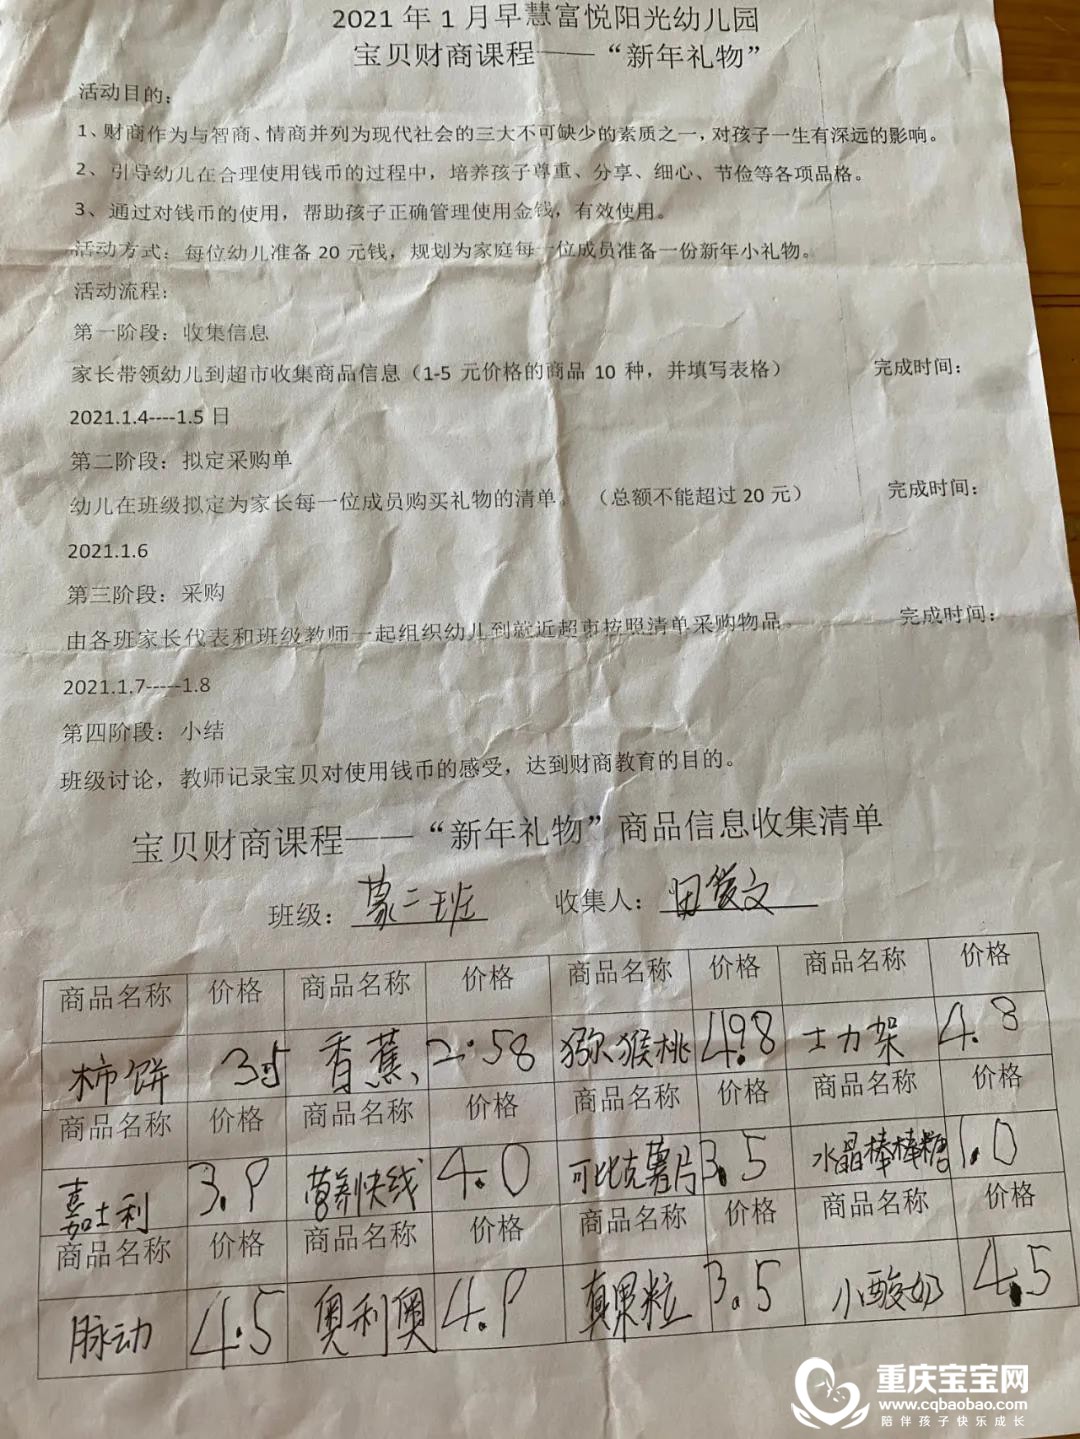 2021 年 1 月早慧富悦阳光幼儿园
宝贝财商课程——“新年礼物”
活动目的：
1、财商作为与智商、情商并列为现代社会的三大不可缺少的素质之一，对孩子一生有深远的影响。
2、引导幼儿在合理使用钱币的过程中，培养孩子尊重、分享、细心、节俭等各项品格。
3、通过对钱币的使用，帮助孩子正确管理使用金钱，有效使用。
活动方式：每位幼儿准备 20 元钱，规划为家庭每一位成员准备一份新年小礼物。
活动流程：
第一阶段：收集信息
家长带领幼儿到超市收集商品信息（1-5 元价格的商品 10 种，并填写表格） 完成时间：
2021.1.4----1.5 日
第二阶段：拟定采购单
幼儿在班级拟定为家长每一位成员购买礼物的清单。（总额不能超过 20 元） 完成时间：
2021.1.6
第三阶段：采购
由各班家长代表和班级教师一起组织幼儿到就近超市按照清单采购物品。 完成时间：
2021.1.7-----1.8
第四阶段：小结
班级讨论，教师记录宝贝对使用钱币的感受，达到财商教育的目的。
宝贝财商课程——“新年礼物”商品信息收集清单
班级：蒙二班 收集人：田俊文
商品名称 价格 商品名称 价格 商品名称 价格 商品名称 价格
柿饼 香蕉 2.58 猕猴桃 4.98 士力架 4.8
商品名称 价格 商品名称 价格 商品名称 价格 商品名称 价格
嘉士利 3.9 营养快线 4.0 可比克薯片 3.5 水晶棒棒糖 1.0
商品名称 价格 商品名称 价格 商品名称 价格 商品名称 价格
脉动 4.5 奥利奥 4.9 真果粒 3.5 小酸奶 4.5
重庆宝宝网
www.cqbaobao.com
陪伴孩子快乐成长